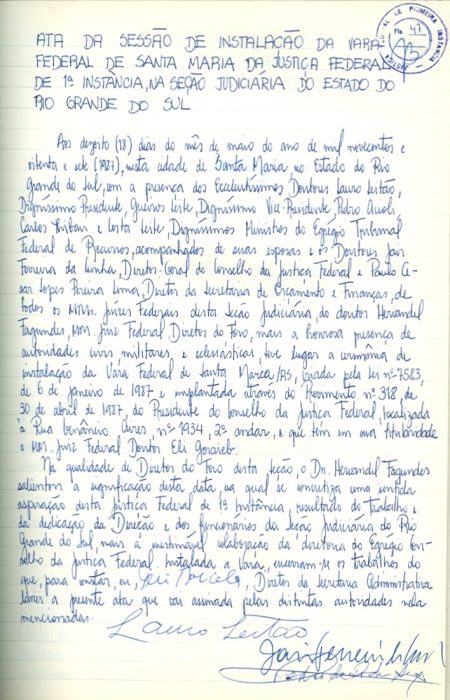 AL DE PRIMEIRA INSTANCIA
Fls. 47
JUSTIÇA
ATA DA SESSÃO DE INSTALAÇÃO DA VARA
FEDERAL DE SANTA MARIA DA JUSTIÇA FEDERAL
DE 1ª INSTÂNCIA, NA SEÇÃO JUDICIÁRIA DO ESTADO DO
RIO GRANDE DO SUL
Aos dezoito (18) dias do mês de maio do ano de mil novecentos e
oitenta e sete (1987), nesta cidade de Santa Maria, no Estado do Rio
Grande do Sul, com a presença dos Excelentíssimos Doutores Lauro Leitão,
Digníssimo Presidente, Gueiros Leite, Digníssimo Vice-Presidente, Pedro Acioli,
Carlos Thibau e Costa Leite, Digníssimos Ministros do Egrégio Tribunal
Federal de Recursos, acompanhados de suas esposas e os Doutores Jair
Ferreira da Cunha, Diretor-Geral do Conselho da Justiça Federal e Paulo Ce-
sar Lopes Pereira Lima, Diretor da Secretaria de Orçamento e Finanças, de
todos os MMs. Juízes Federais desta Seção Judiciária, do doutor Hervandil
Fagundes, MM. Juiz Federal Diretor do Foro, mais a honrosa presença de
autoridades civis, militares, e eclesiásticas, teve lugar a cerimônia de
instalação da Vara Federal de Santa Maria/RS, criada pela Lei nº 7583,
de 6 de janeiro de 1987 e implantada através do Provimento nº 318, de
30 de abril de 1987, do Presidente do Conselho da Justiça Federal, localizada
à Rua Venâncio Aires, nº 1934, 2º andar, e que tem em sua titularidade
o MM. Juiz Federal Doutor Eli Goraieb.
Na qualidade de Diretor do Foro desta Seção, o Dr. Hervandil Fagundes
salientou a significação desta data, na qual se concretiza uma sentida
aspiração desta Justiça Federal de 1ª Instância, resultado do trabalho e
da dedicação da Direção e dos funcionários da Seção Judiciária do Rio
Grande do Sul, mais a inestimável colaboração da diretoria do Egrégio Con-
selho da Justiça Federal. Instalada a Vara, encerram-se os trabalhos do
que, para constar, eu, Diretor da Secretaria Administrativa
lavrei a presente ata que vai assinada pelas distintas autoridades nela
mencionadas.
Lauro Leitão
Jair Ferreira da Cunha